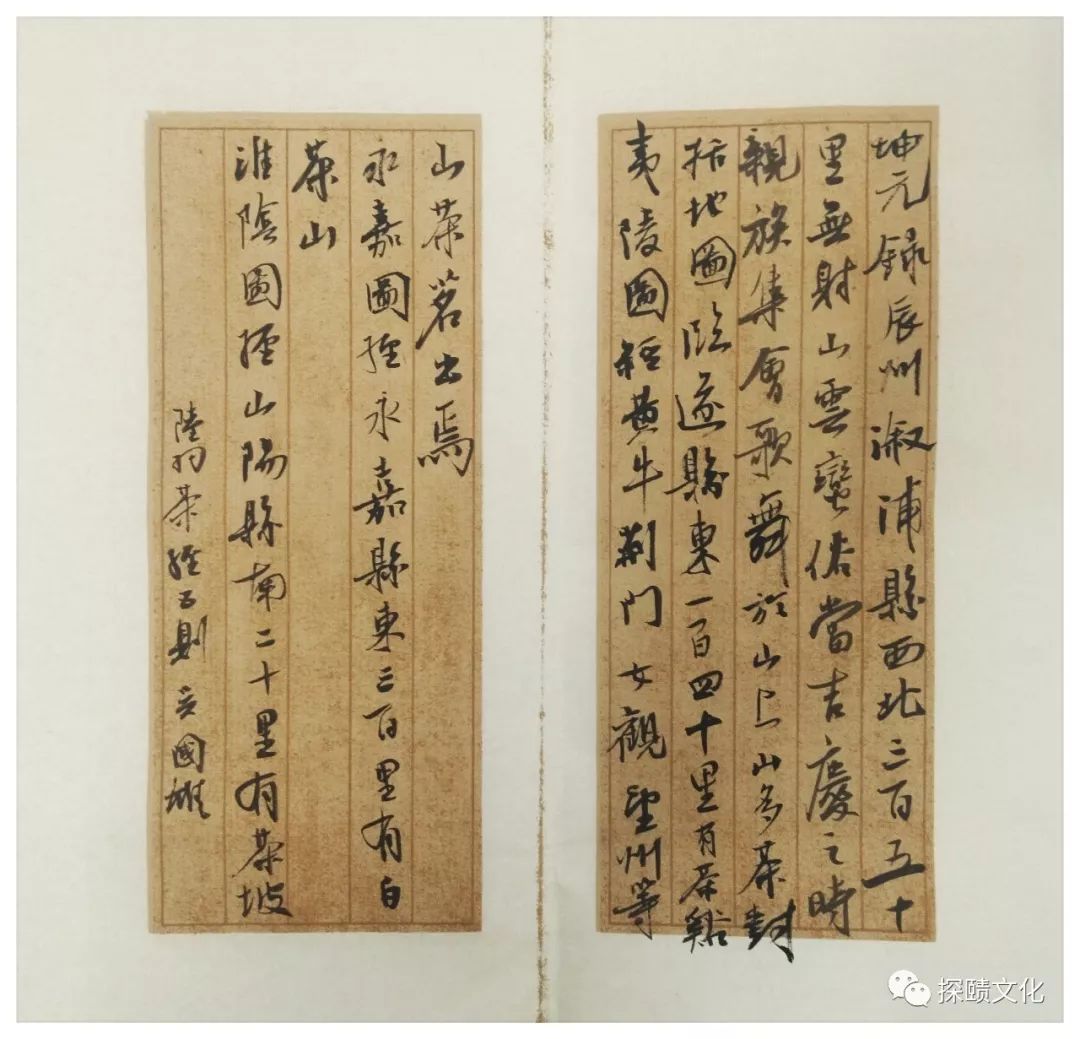 坤元録辰州溆浦縣西北三百五十
里無射山雲蠻俗當吉慶之時
親族集會歌舞於山上山多茶樹
括地圖臨遂縣東一百四十里有茶谿
夷陵圖經黄牛荆門女觀望州等
山茶茗出焉
永嘉圖經永嘉縣東三百里有白
茶山
淮陰圖經山陽縣南二十里有茶坡
陸羽茶經五則 國雄
探赜文化